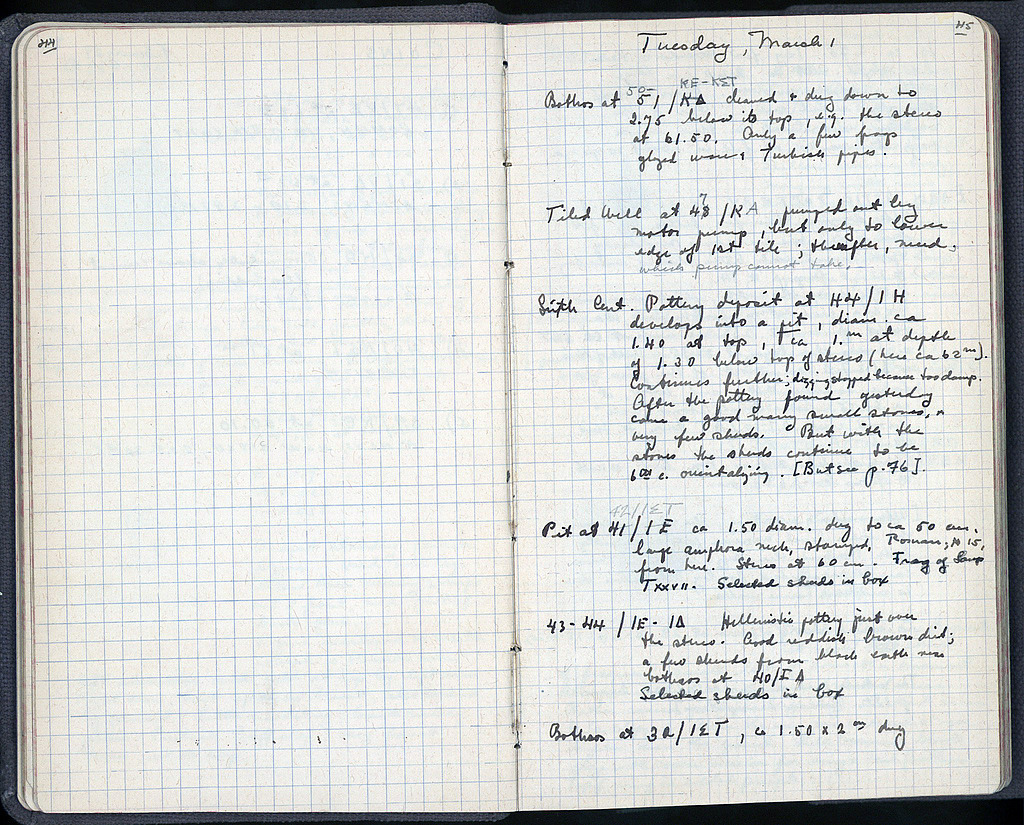 44
45
Tuesday, March 1
50- KE-KΣΤ
Bothros at 51/KΔ cleared & dug down to
2.75 below its top, e.g. the stereo
at 61.50. Only a few frags
glazed ware & Turkish pipes.
7
Tiled Well at 48/KA pumped out by
motor pump, but only to lower
edge of 1st tile; thereafter, mud,
which pump cannot take.
Sixth Cent. Pottery deposit at 44/IH
develops into a pit, diam. ca
1.40 at top, ca 1.m at depth
of 1.30 below top of stereo (here ca 62m).
Continues further; digging stopped because too damp.
After the pottery found yesterday
came a good many small stones, &
very few sherds. But with the
stones the sherds continue to be
6th c. orientalizing. [But see p. 76].
42/IΣΤ
Pit at 41/IE ca 1.50 diam. dug to ca 50 cm.
large amphora neck, stamped, Roman, 15,
from here. Stereo at 60 cm. Frag of Lamp
T XXVII. Selected sherds in box
43-44/IE-IΔ Hellenistic pottery just over
the stereo. Good reddish brown dirt;
a few sherds from black earth near
bothros at 40/IΔ
Selected sherds in box
Bothros at 39/IΣΤ, ca 1.50 x 2 m dug